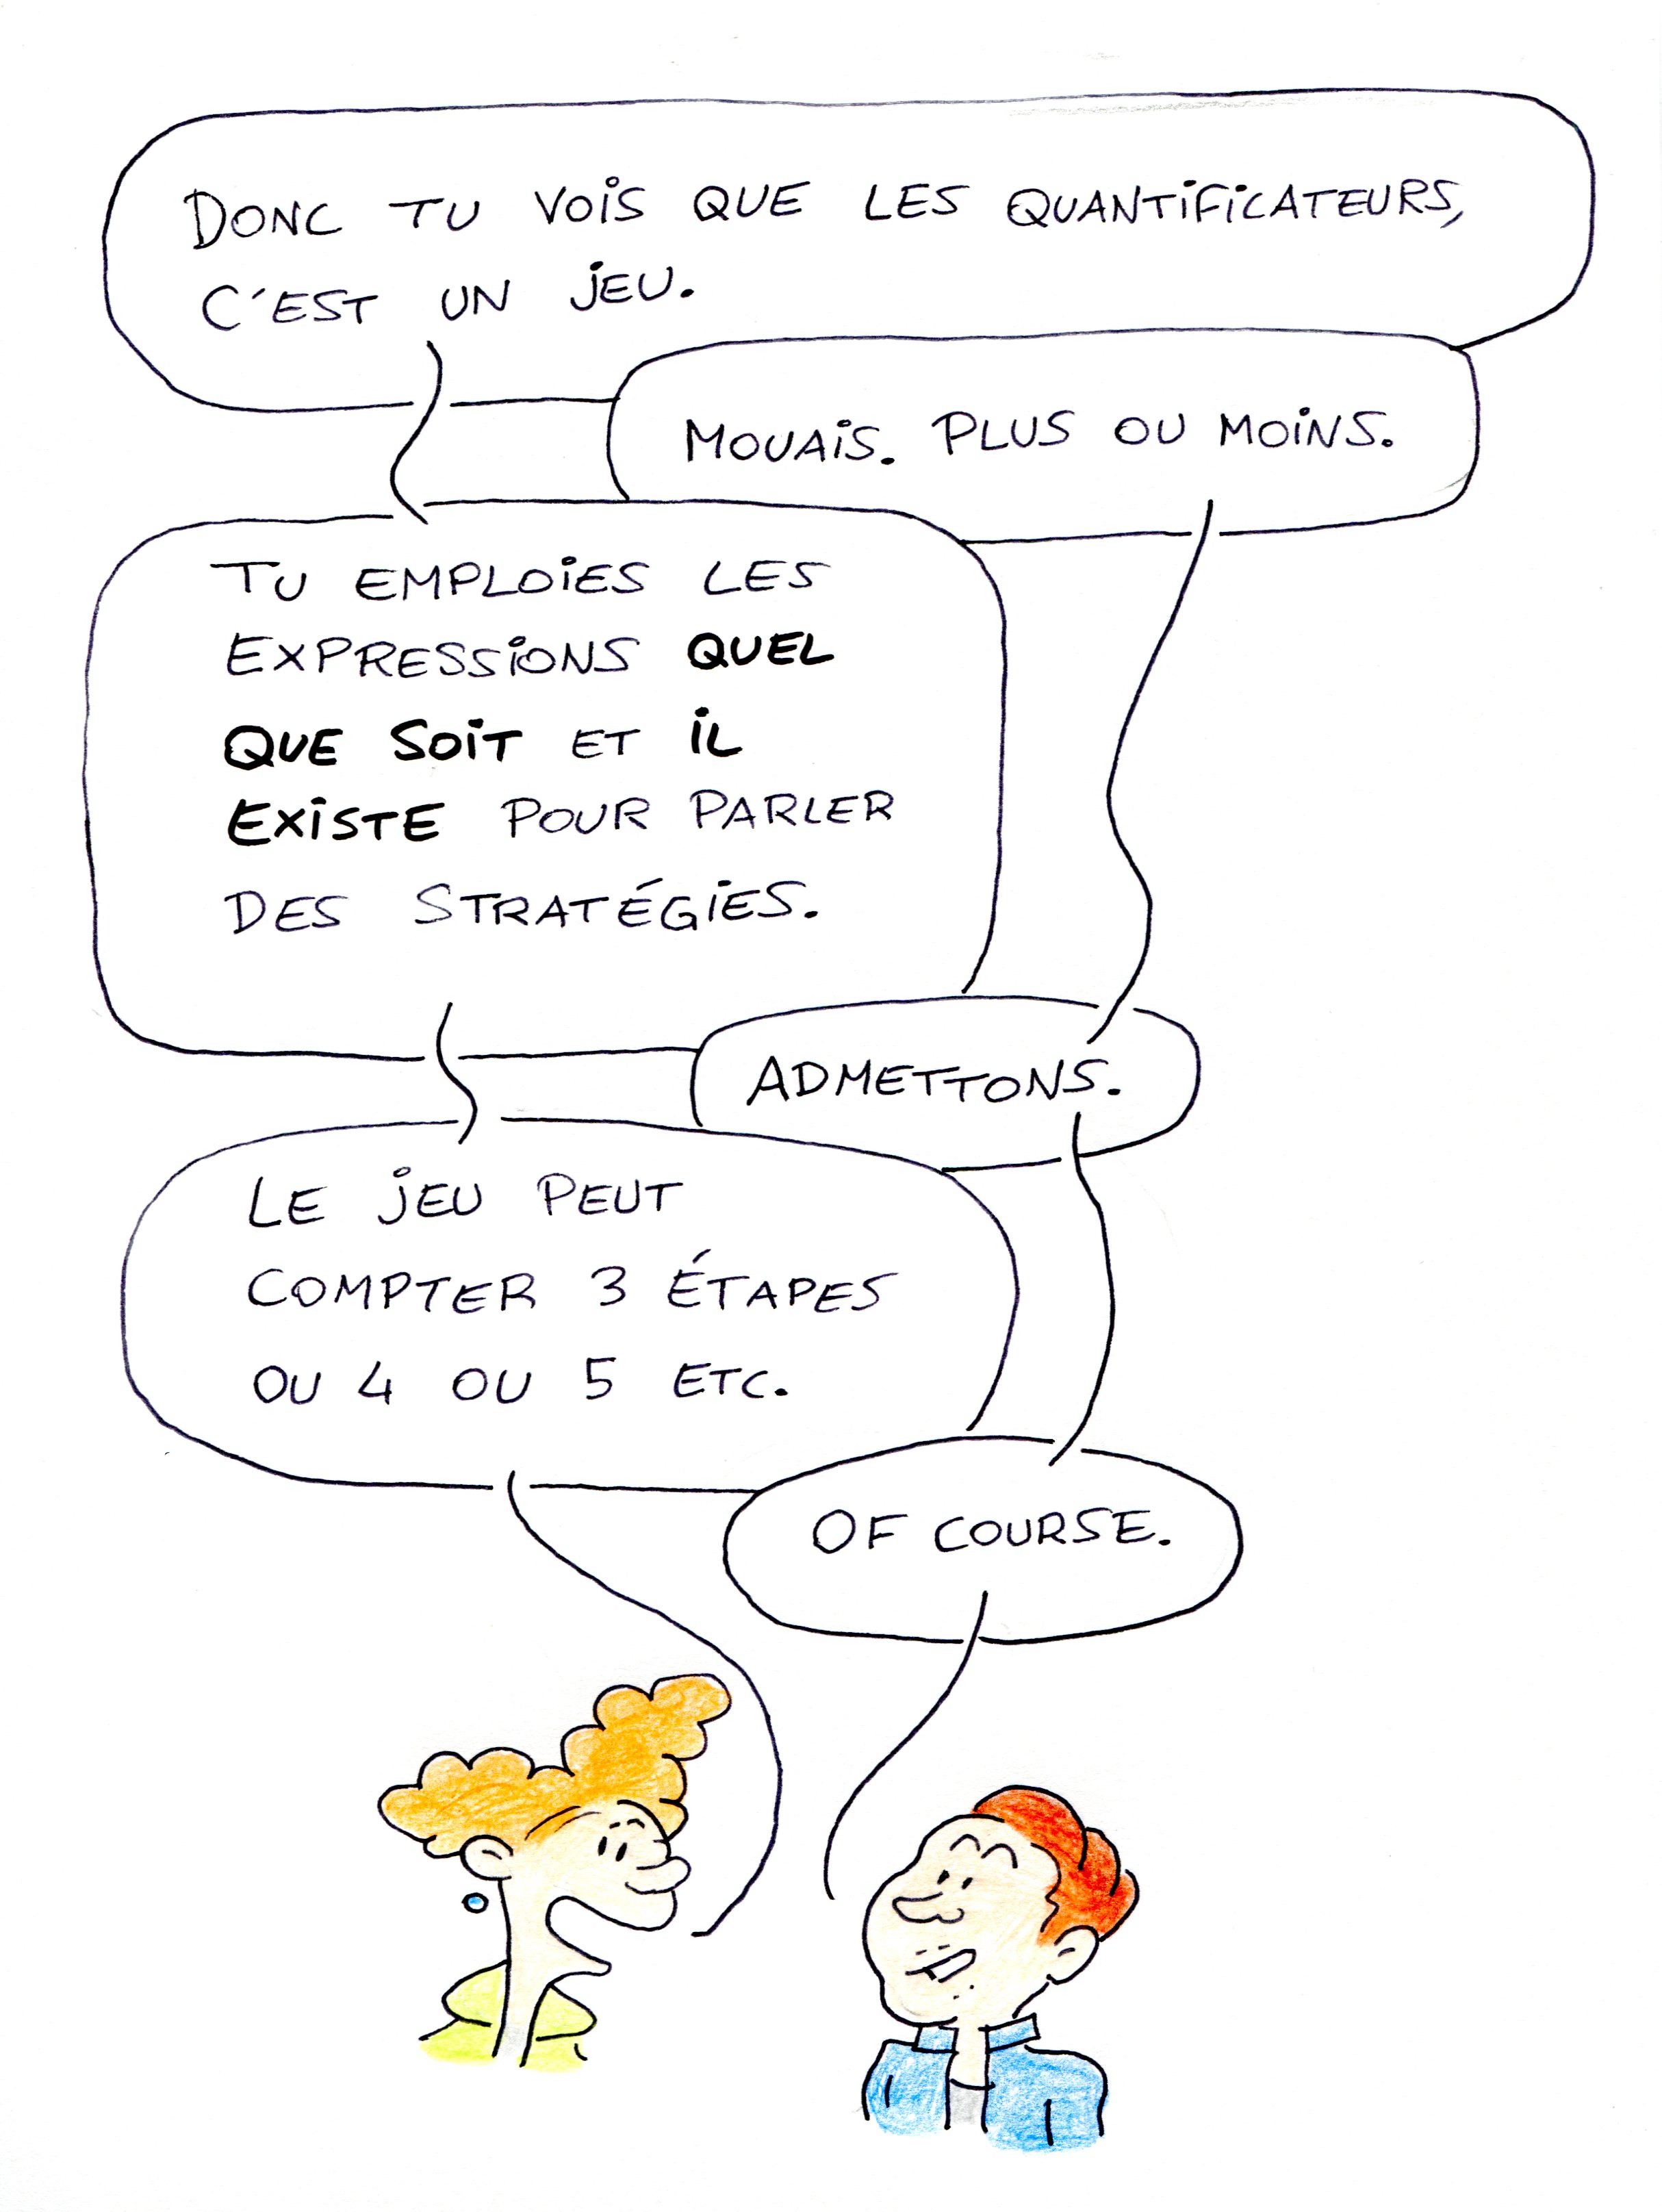 DONC TU VOIS QUE LES QUANTIFICATEURS,
C'EST UN JEU.
MOUAIS. PLUS OU MOINS.
TU EMPLOIES LES
EXPRESSIONS QUEL
QUE SOIT ET IL
EXISTE POUR PARLER
DES STRATÉGIES.
ADMETTONS.
LE JEU PEUT
COMPTER 3 ÉTAPES
OU 4 OU 5 ETC.
OF COURSE.